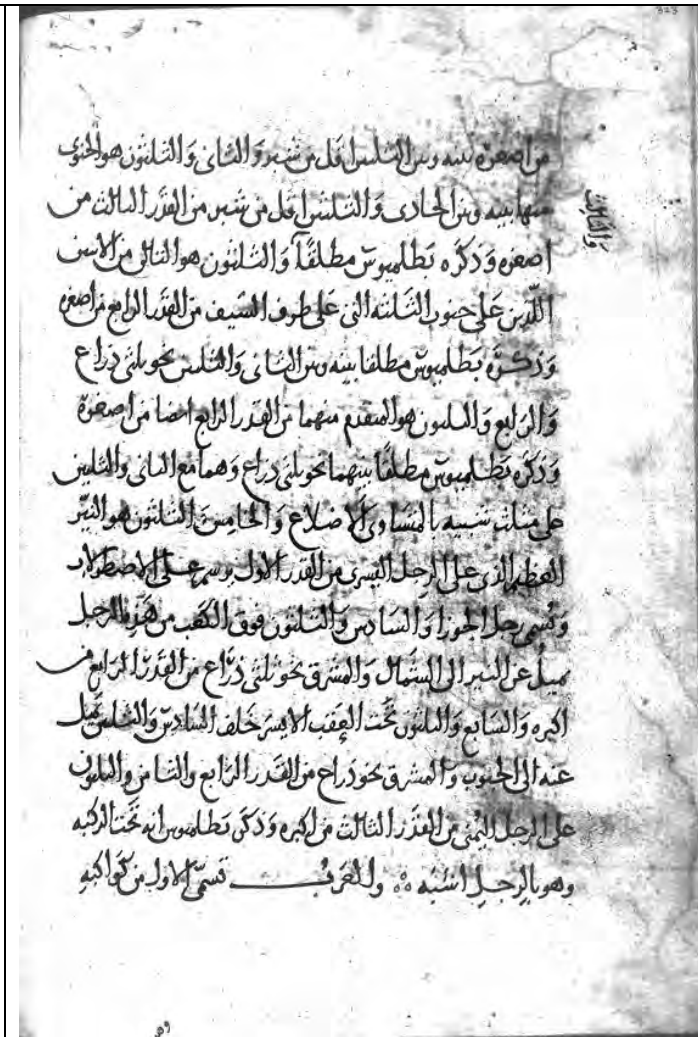 323
من اصغره بينه وبين الثلثين اقل من شبر والثانى والثلثون هو الجنوبى
منها بينه وبين الحادى والثلثين اقل من شبر من القدر الثالث من
والثالث
اصغره وذكره بطلميوس مطلقاً والثلثون هو التالى من الاثنين
اللذين على جنوب الثلثة التى على طرف السيف من القدر الرابع من اصغره
وذكره بطلميوس مطلقا بينه وبين الثانى والثلثين نحو ثلثى ذراع
والرابع والثلثون هو المتقدم منهما من القدر الرابع ايضا من اصغره
وذكره بطلميوس مطلقا بينهما نحو ثلثى ذراع وهما مع الثانى والثلثين
على مثلث شبيه بالمتساوى الاضلاع والخامس والثلثون هو النير
العظيم الذى على الرجل اليسرى من القدر الاول يرسم على الاصطرلاب
ويسمى رجل الجوزا والسادس والثلثون فوق الكعب من هذه الرجل
يميل عن النير الى الشمال والمشرق نحو ثلثى ذراع من القدر الرابع من
اكبره والسابع والثلثون تحت العقب الايسر خلف السادس والثلثين يميل
عنه الى الجنوب والمشرق نحو ذراع من القدر الرابع والثامن والثلثون
على الرجل اليمنى من القدر الثالث من اكبره وذكر بطلميوس انه تحت الركبه
وهو بالرجل اشبه ٥٥ والعرب تسمى الاول من كواكبه
وهى